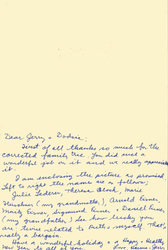 Dear Jerry & Dodie:
First of all thanks so much for the
corrected family tree. You did such a
wonderful job on it and we really appreciate
it.
I am enclosing the picture as promised
Left to right the names are as follows;
Julie Lederer, Theresa Block, Marie
(my grandmother), Arnold
Marty Posner, Sigmund Posner, Daniel
(my grandfather). See how lucky you
are twice related to Beth's myself. That
really a bargain.
Have a wonderful holiday & a Happy & Healthy
New Year to all of you.